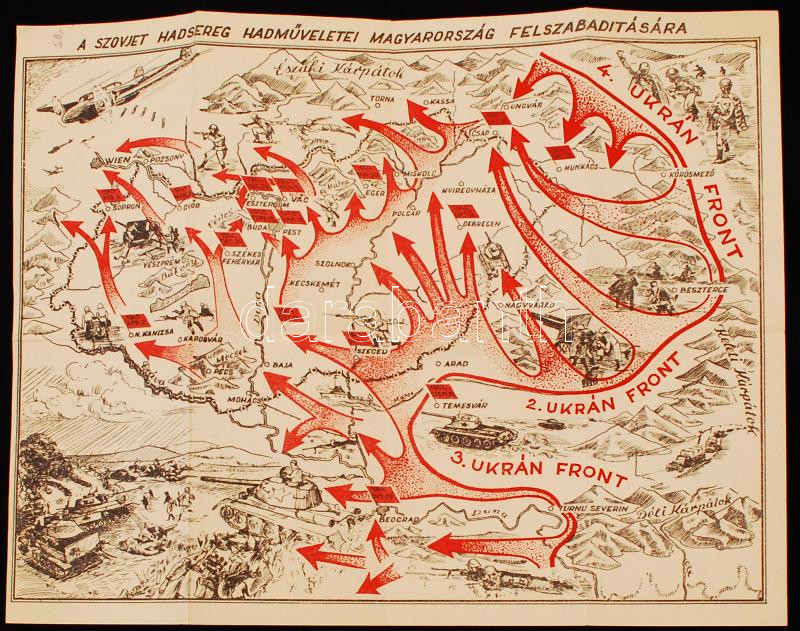 A SZOVJET HADSEREG HADMŰVELETEI MAGYARORSZÁG FELSZABADITÁSÁRA
Északi Kárpátok
4. UKRÁN FRONT
TORNA
KASSA
UNGVÁR
CSAP
MUNKÁCS
KÖRÖSMEZŐ
WIEN
POZSONY
MISKOLC
Mátra
EGER
NYIREGYHÁZA
SOPRON
GYŐR
ESZTERGOM
VÁC
POLGÁR
DEBRECEN
BUDA
PEST
VESZPRÉM
SZÉKES
FEHÉRVÁR
SZOLNOK
KECSKEMÉT
BESZTERCE
NAGYVÁRAD
darabanth
N. KANIZSA
KAPOSVÁR
SZEGED
ARAD
Keleti Kárpátok
Mecsek
PÉCS
BAJA
2. UKRÁN FRONT
MOHÁCS
TEMESVÁR
Dráva
3. UKRÁN FRONT
BEOGRAD
Duna
TURNU SEVERIN
Déli Kárpátok